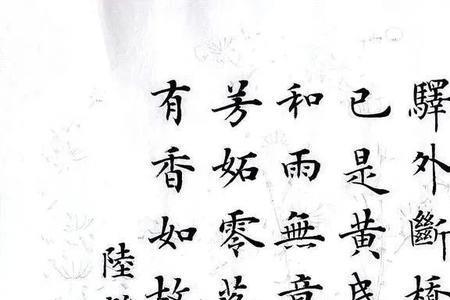 驛外斷橋
已是黄
和雨無意
芳妬零落
有香如故
陸